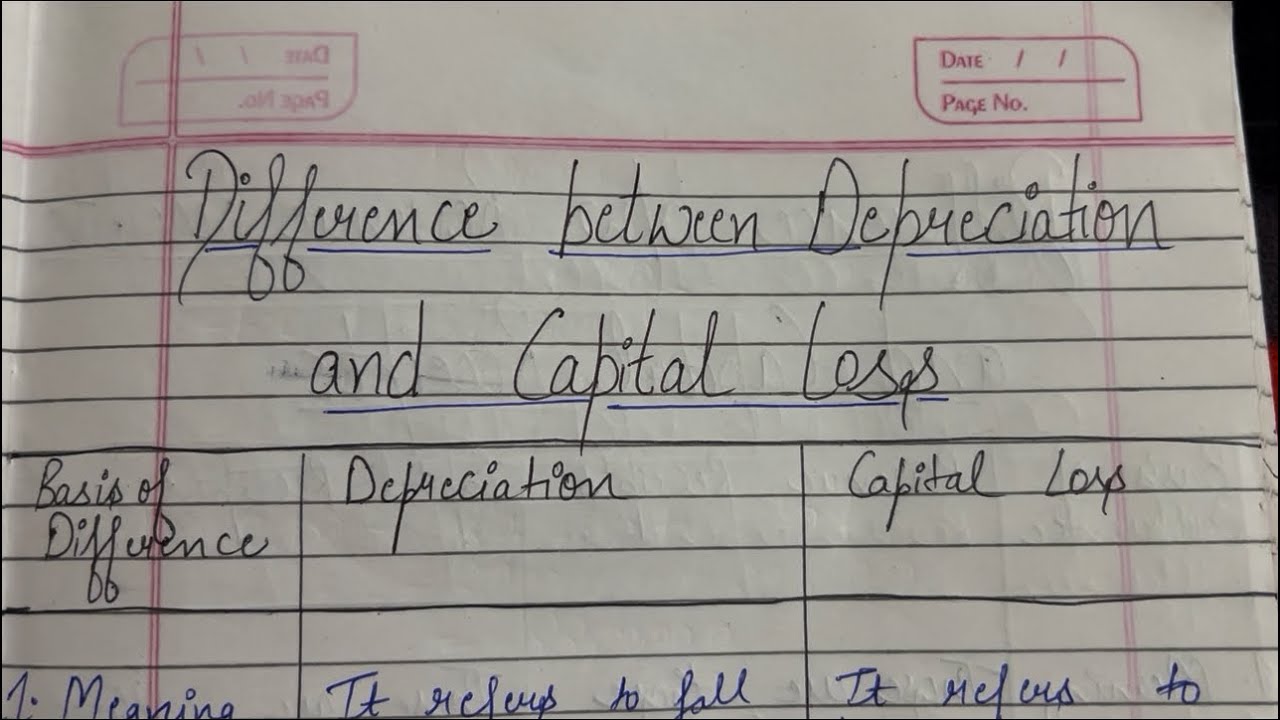 DATE / /
PAGE NO.
DATE / /
PAGE NO.
Difference between Depreciation
and Capital Loss
Basis of Difference
Depreciation
Capital Loss
1. Meaning
It refers to fall
It refers to